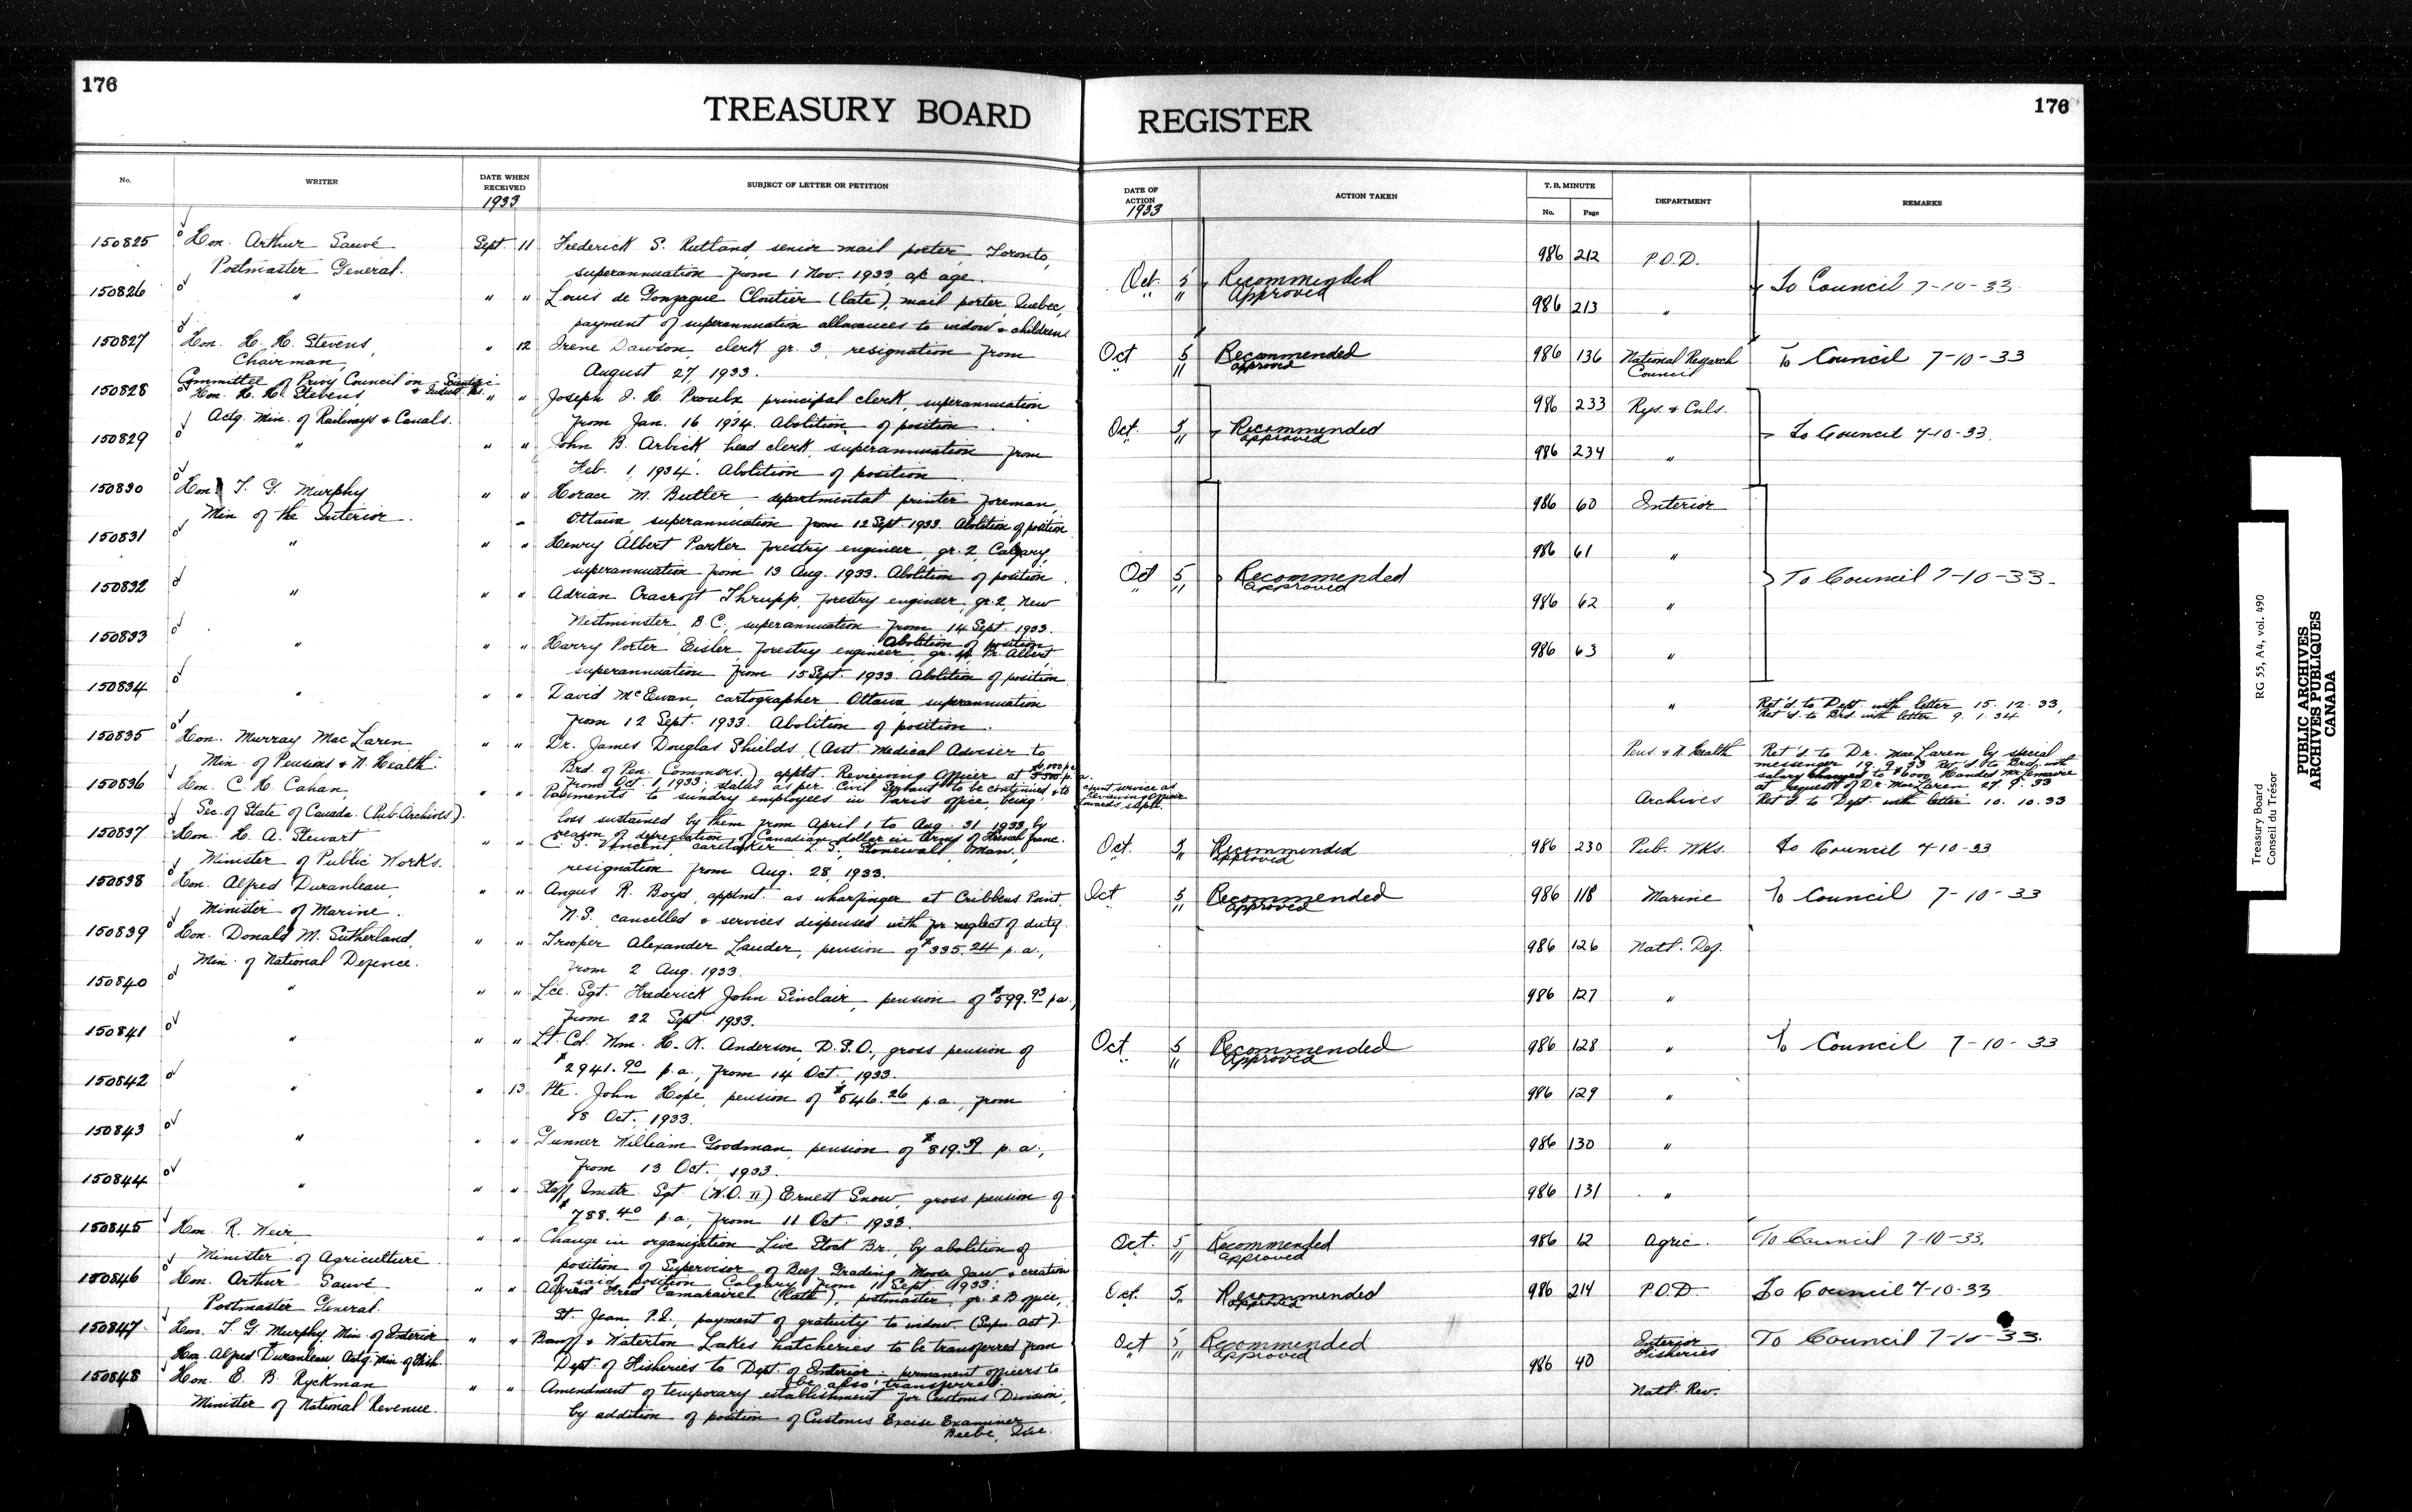 176
TREASURY BOARD REGISTER
176
No.
WRITER
DATE WHEN RECEIVED
1933
SUBJECT OF LETTER OR PETITION
DATE OF ACTION
1933
ACTION TAKEN
T. B. MINUTE
No. Page
DEPARTMENT
REMARKS
150825 Hon. Arthur Sauvé Sept 11 Frederick S. Rutland, senior mail porter, Toronto, 986 212 P.O.D.
Postmaster General. superannuation from 1 Nov. 1933, ap age.
Oct. 5 Recommended To Council 7-10-33
" " Approved
150826 " " " Louis de Gonzague Cloutier (late), mail porter, Quebec, 986 213 "
payment of superannuation allowances to widow & children
150827 Hon. H. H. Stevens, " 12 Irene Dawson, clerk gr. 3, resignation from Oct 5 Recommended 986 136 National Research To Council 7-10-33
Chairman, August 27, 1933. " " approved Council
Committee of Privy Council on Scientific & Indust. Res.
150828 Hon. H. H. Stevens, " " Joseph J. H. Proulx principal clerk, superannuation 986 233 Rys. & Cnls.
Actg. Min. of Railways & Canals. from Jan. 16 1934. Abolition of position.
Oct. 5 Recommended To Council 7-10-33.
" " approved
150829 " " " John B. Arbick, head clerk, superannuation from 986 234 "
Feb. 1, 1934. Abolition of position.
150830 Hon T. G. Murphy " " Horace M. Butler, departmental printer foreman, 986 60 Interior
Min of the Interior. Ottawa superannuation from 12 Sept. 1933. Abolition of position
150831 " " " Henry Albert Parker forestry engineer, gr. 2, Calgary, 986 61 "
superannuation from 13 Aug. 1933. Abolition of position.
Oct 5 Recommended To Council 7-10-33-
" " approved
150832 " " " Adrian Cracroft Thrupp, forestry engineer, gr. 2, New 986 62 "
Westminster, B.C., superannuation from 14 Sept. 1933.
Abolition of position
150833 " " " Harry Porter Eisler, forestry engineer, gr. Pr. Albert 986 63 "
superannuation from 15 Sept. 1933. Abolition of position
150834 " " " David McEwan, cartographer, Ottawa, superannuation " Ret'd. to Dept. with letter 15. 12. 33,
from 12 Sept. 1933. Abolition of position. Ret'd. to Brd. with letter 9. 1. 34
150835 Hon. Murray MacLaren " " Dr. James Douglas Shields, (Asst. Medical Adviser to Pens. & N. Health Ret'd. to Dr. MacLaren by special
Min. of Pensions & N. Health. Brd. of Pen. Commrs.) apptd. Reviewing Officer at $6,000 p.a. messenger 19. 9. 33 Ret'd. to Brd. with
from Oct. 1, 1933; status as per Civil Servant to be continued & to count service as Reviewing Officer towards s/aptl. salary changed to $6000 Handed Mr. Lemaire
at request of Dr. MacLaren 27. 9. 33
150836 Hon. C. H. Cahan, " " Payments to sundry employees in Paris office, being Archives Ret'd. to Dept. with letter 10. 10. 33
Sec. of State of Canada. (Pub. Archives). loss sustained by them from April 1 to Aug. 31 1933 by
reason of depreciation of Canadian dollar in terms of French franc.
150837 Hon. H. A. Stewart " " C. S. Vincent, caretaker, Stonewall, Man., Oct. 5 Recommended 986 230 Pub. Wks. To Council 7-10-33
Minister of Public Works. resignation from Aug. 28, 1933. " approved
150838 Hon. Alfred Duranleau " " Angus R. Boyd, apptmt. as wharfinger at Cribbens Point, Oct 5 Recommended 986 118 Marine To Council 7-10-33
Minister of Marine. N.S. cancelled & services dispensed with for neglect of duty. " approved
150839 Hon. Donald M. Sutherland, " " Trooper Alexander Lauder, pension of $335.24 p.a., 986 126 Natl. Def.
Min. of National Defence. from 2 Aug. 1933.
150840 " " " Lce. Sgt. Frederick John Sinclair, pension of $599.93 p.a., 986 127 "
from 22 Sept. 1933.
150841 " " " Lt. Col. Wm. H. K. Anderson, D.S.O., gross pension of Oct 5 Recommended 986 128 " To Council 7-10-33
$2941.90 p.a., from 14 Oct. 1933. " " approved
150842 " " 13 Pte. John Hope, pension of $546.26 p.a., from 986 129 "
18 Oct. 1933.
150843 " " " Gunner William Goodman, pension of $819.39 p.a., 986 130 "
from 13 Oct. 1933.
150844 " " " Staff Qmstr. Sgt. (W.O. II) Ernest Snow, gross pension of 986 131 "
$788.40 p.a., from 11 Oct. 1933.
150845 Hon. R. Weir, " " Change in organization Live Stock Br., by abolition of Oct. 5 Recommended 986 12 Agric. To Council 7-10-33
Minister of Agriculture position of Supervisor of Beef Grading Moose Jaw & creation " " approved
of said position Calgary from 11 Sept 1933.
150846 Hon. Arthur Sauvé " " Alfred Fred Camaraire (late), postmaster, gr. 2 B office, Oct. 5 Recommended 986 214 P.O.D To Council 7-10-33
Postmaster General. St. Jean, P.Q., payment of gratuity to widow. (Supn. Act). approved
150847 Hon. T. G. Murphy Min. of Interior " " Banff & Waterton Lakes hatcheries to be transferred from Oct 5 Recommended 986 40 Interior To Council 7-10-33.
Hon. Alfred Duranleau Actg. Min of Fish. Dept of Fisheries to Dept of Interior permanent officers to " " approved Fisheries
be also transferred.
150848 Hon. E. B. Ryckman " " Amendment of temporary establishment for Customs Division, Natl. Rev.
Minister of National Revenue. by addition of position of Customs Excise Examiner
Beebe, Que.
Treasury Board RG 55, A4, vol. 490
Conseil du Trésor
PUBLIC ARCHIVES
ARCHIVES PUBLIQUES
CANADA